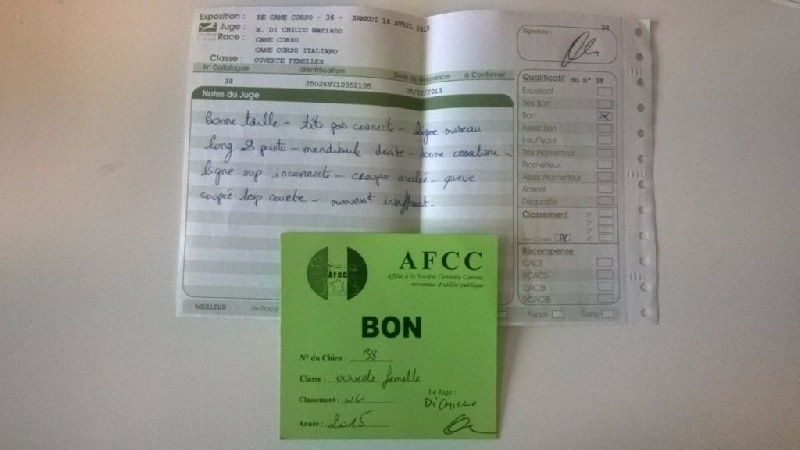 Exposition : RE CANE CORSO - 36 - SAMEDI 18 AVRIL 2015
Juge : M. DI CHICCO MARIANO
Race : CANE CORSO
CANE CORSO ITALIANO
Classe : OUVERTE FEMELLES
38
Signature
N° Catalogue Identification Date de Naissance à Confirmer
38
Notes du Juge
Bonne taille - tête pas correcte - ligne museau
long & pointu - mandibule droite - bonne ossature -
ligne sup incorrecte - croupe avalée - queue
coupée trop courte - mouvemt insuffisant.
Qualificatif du n° 38
Excellent
Très Bon
Bon
Assez Bon
Insuffisant
Très Prometteur
Prometteur
Assez Prometteur
Absent
Disqualifié
Classement
Non Classé
Récompense
CACS
RCACS
CACIB
RCACIB
MEILLEUR de Race
AFCC
AFCC
Affilié à la Société Centrale Canine,
reconnue d'utilité publique
BON
N° du Chien : 38
Classe : ouverte femelle
Classement : NC
Le Juge :
Di Chicco
Année : 2015